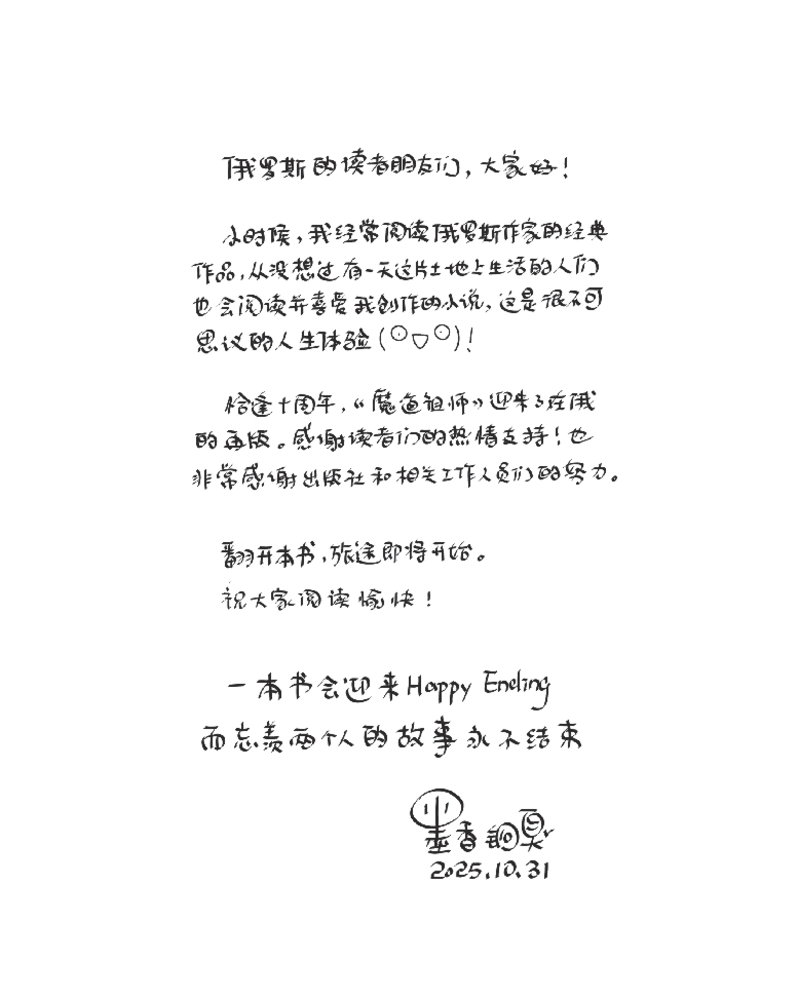 俄罗斯的读者朋友们，大家好！
小时候，我经常阅读俄罗斯作家的经典
作品，从没想过有一天这片土地上生活的人们
也会阅读并喜爱我创作的小说，这是很不可
思议的人生体验(⊙▽⊙)！
恰逢十周年，《魔道祖师》迎来了在俄
的再版。感谢读者们的热情支持！也
非常感谢出版社和相关工作人员们的努力。
翻开本书，旅途即将开始。
祝大家阅读愉快！
一本书会迎来Happy Ending
而忘羡两个人的故事永不结束
墨香铜臭
2025.10.31